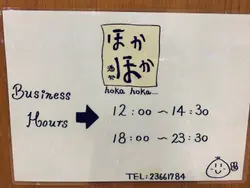 ほか
ほか
hoka hoka...
Business
Hours
12:00 〜 14:30
18:00 〜 23:30
TEL: 23661784